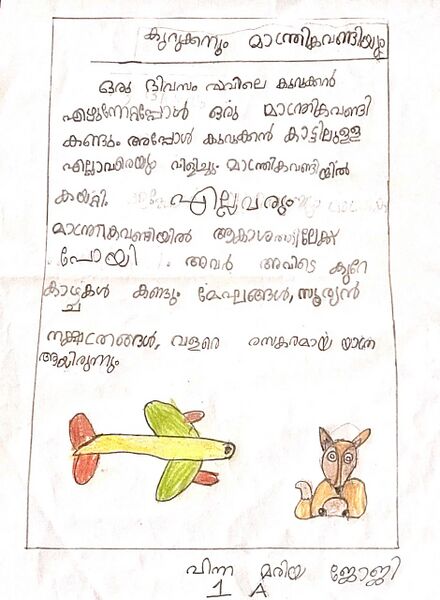 കുറുക്കനും മാന്ത്രികവണ്ടിയും
ഒരു ദിവസം രാവിലെ കുറുക്കൻ
എഴുന്നേറ്റപ്പോൾ ഒരു മാന്ത്രികവണ്ടി
കണ്ടും അപ്പോൾ കുറുക്കൻ കാട്ടിലുള്ള
എല്ലാവരെയും വിളിച്ചും മാന്ത്രികവണ്ടിയിൽ
കയറ്റി. എല്ലവരും
മാന്ത്രികവണ്ടിയിൽ ആകാശത്തിലേക്ക്
പോയി. അവർ അവിടെ കുറേ
കാഴ്ചകൾ കണ്ടും മേഘങ്ങൾ, സൂര്യൻ
നക്ഷത്രങ്ങൾ, വളരെ രസകരമായ യാത്ര
ആയിരുന്നും
വിന്ന മരിയ ജോജി
1 A